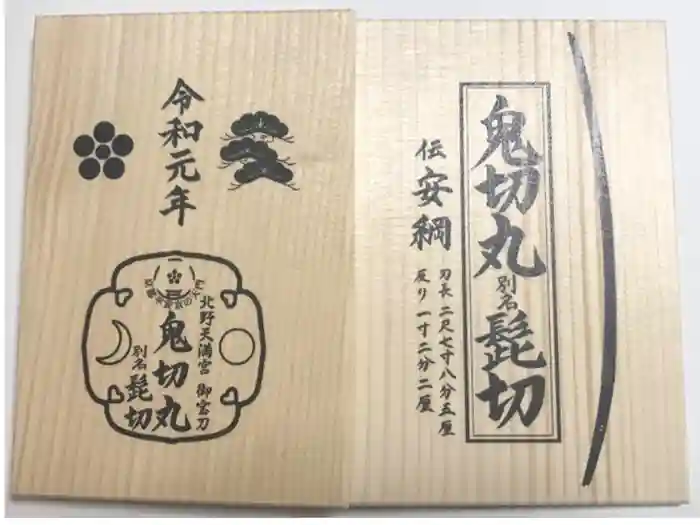 令和元年
北野天満宮 御宝刀
鬼切丸
別名 髭切
鬼切丸 別名 髭切
伝 安綱
刃長 二尺七寸八分五厘
反り 一寸二分二厘